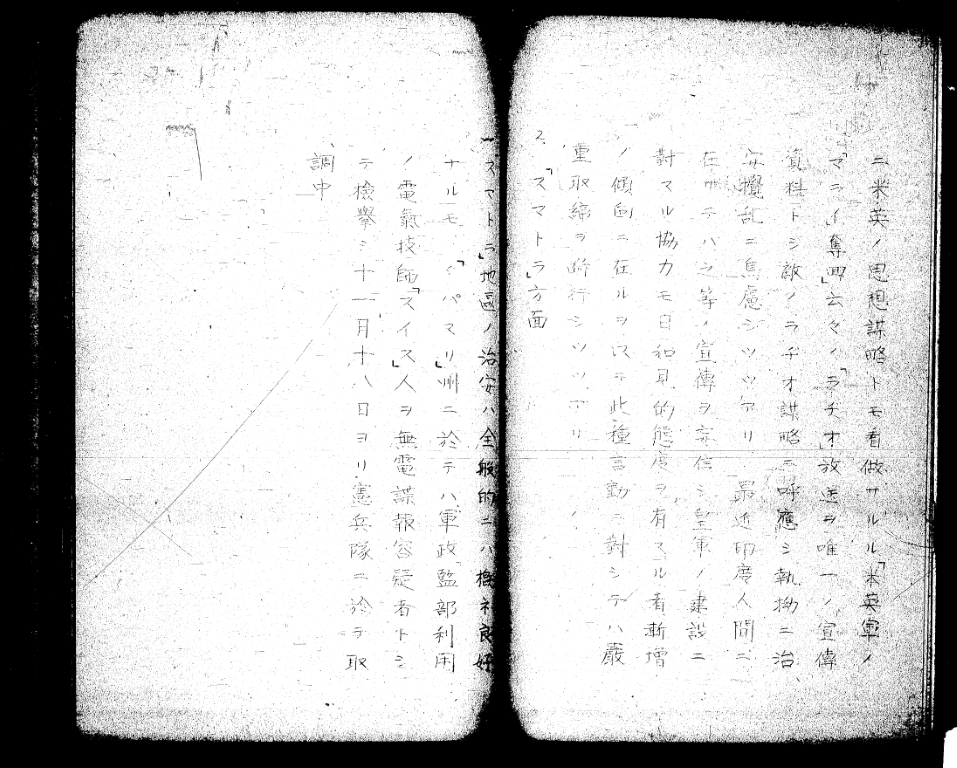 ニ米英ノ思想謀略トモ看做サルル「米英軍ノ
「マライ」奪回」云々ノ「ラヂオ」放送ヲ唯一ノ宣傳
資料トシ敵ノラヂオ謀略ニ呼應シ執拗ニ治
安攪乱ニ焦慮シツツアリ 最近印度人間ニ
在リテハ之等ノ宣傳ヲ妄信シ皇軍ノ建設ニ
對スル協力モ日和見的態度ヲ有スル者漸増
ノ傾向ニ在ルヲ以テ此種言動ニ對シテハ嚴
重取締ヲ断行シツツアリ
2、「スマトラ」方面
「スマトラ」地區ノ治安ハ全般的ニハ概ネ良好
ナルモ「パマリ」州ニ於テハ軍政監部利用
ノ電氣技師「スイス」人ヲ無電諜報容疑者トシ
テ檢擧シ十一月十八日ヨリ憲兵隊ニ於テ取
調中